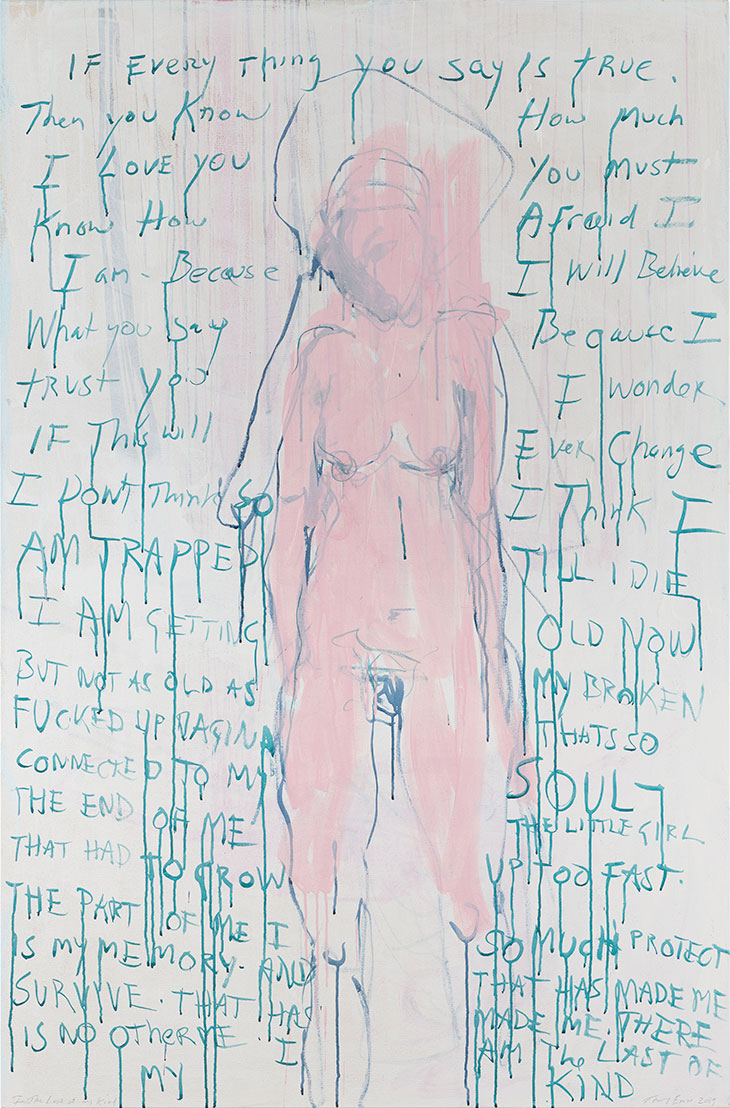 IF Every Thing you say Is true.
Then you Know How much
I Love you You must
Know How Afraid I
I am - Because I Will Believe
What you say Because I
trust you I wonder
IF This will Ever Change
I Dont Think So I Think I
AM TRAPPED TILL I DIE
I AM GETTING OLD NOW
BUT NOT AS OLD AS MY BROKEN
FUCKED UP VAGINA THATS SO
CONNECTED TO MY SOUL-
THE END OF ME THE LITTLE GIRL
THAT HAD TO GROW UP TOO FAST.
THE PART OF ME I SO MUCH PROTECT
IS MY MEMORY. AND THAT HAS MADE ME
SURVIVE. THAT HAS MADE ME. THERE
IS NO OTHER ME. I AM The LAST OF
MY KIND
2019